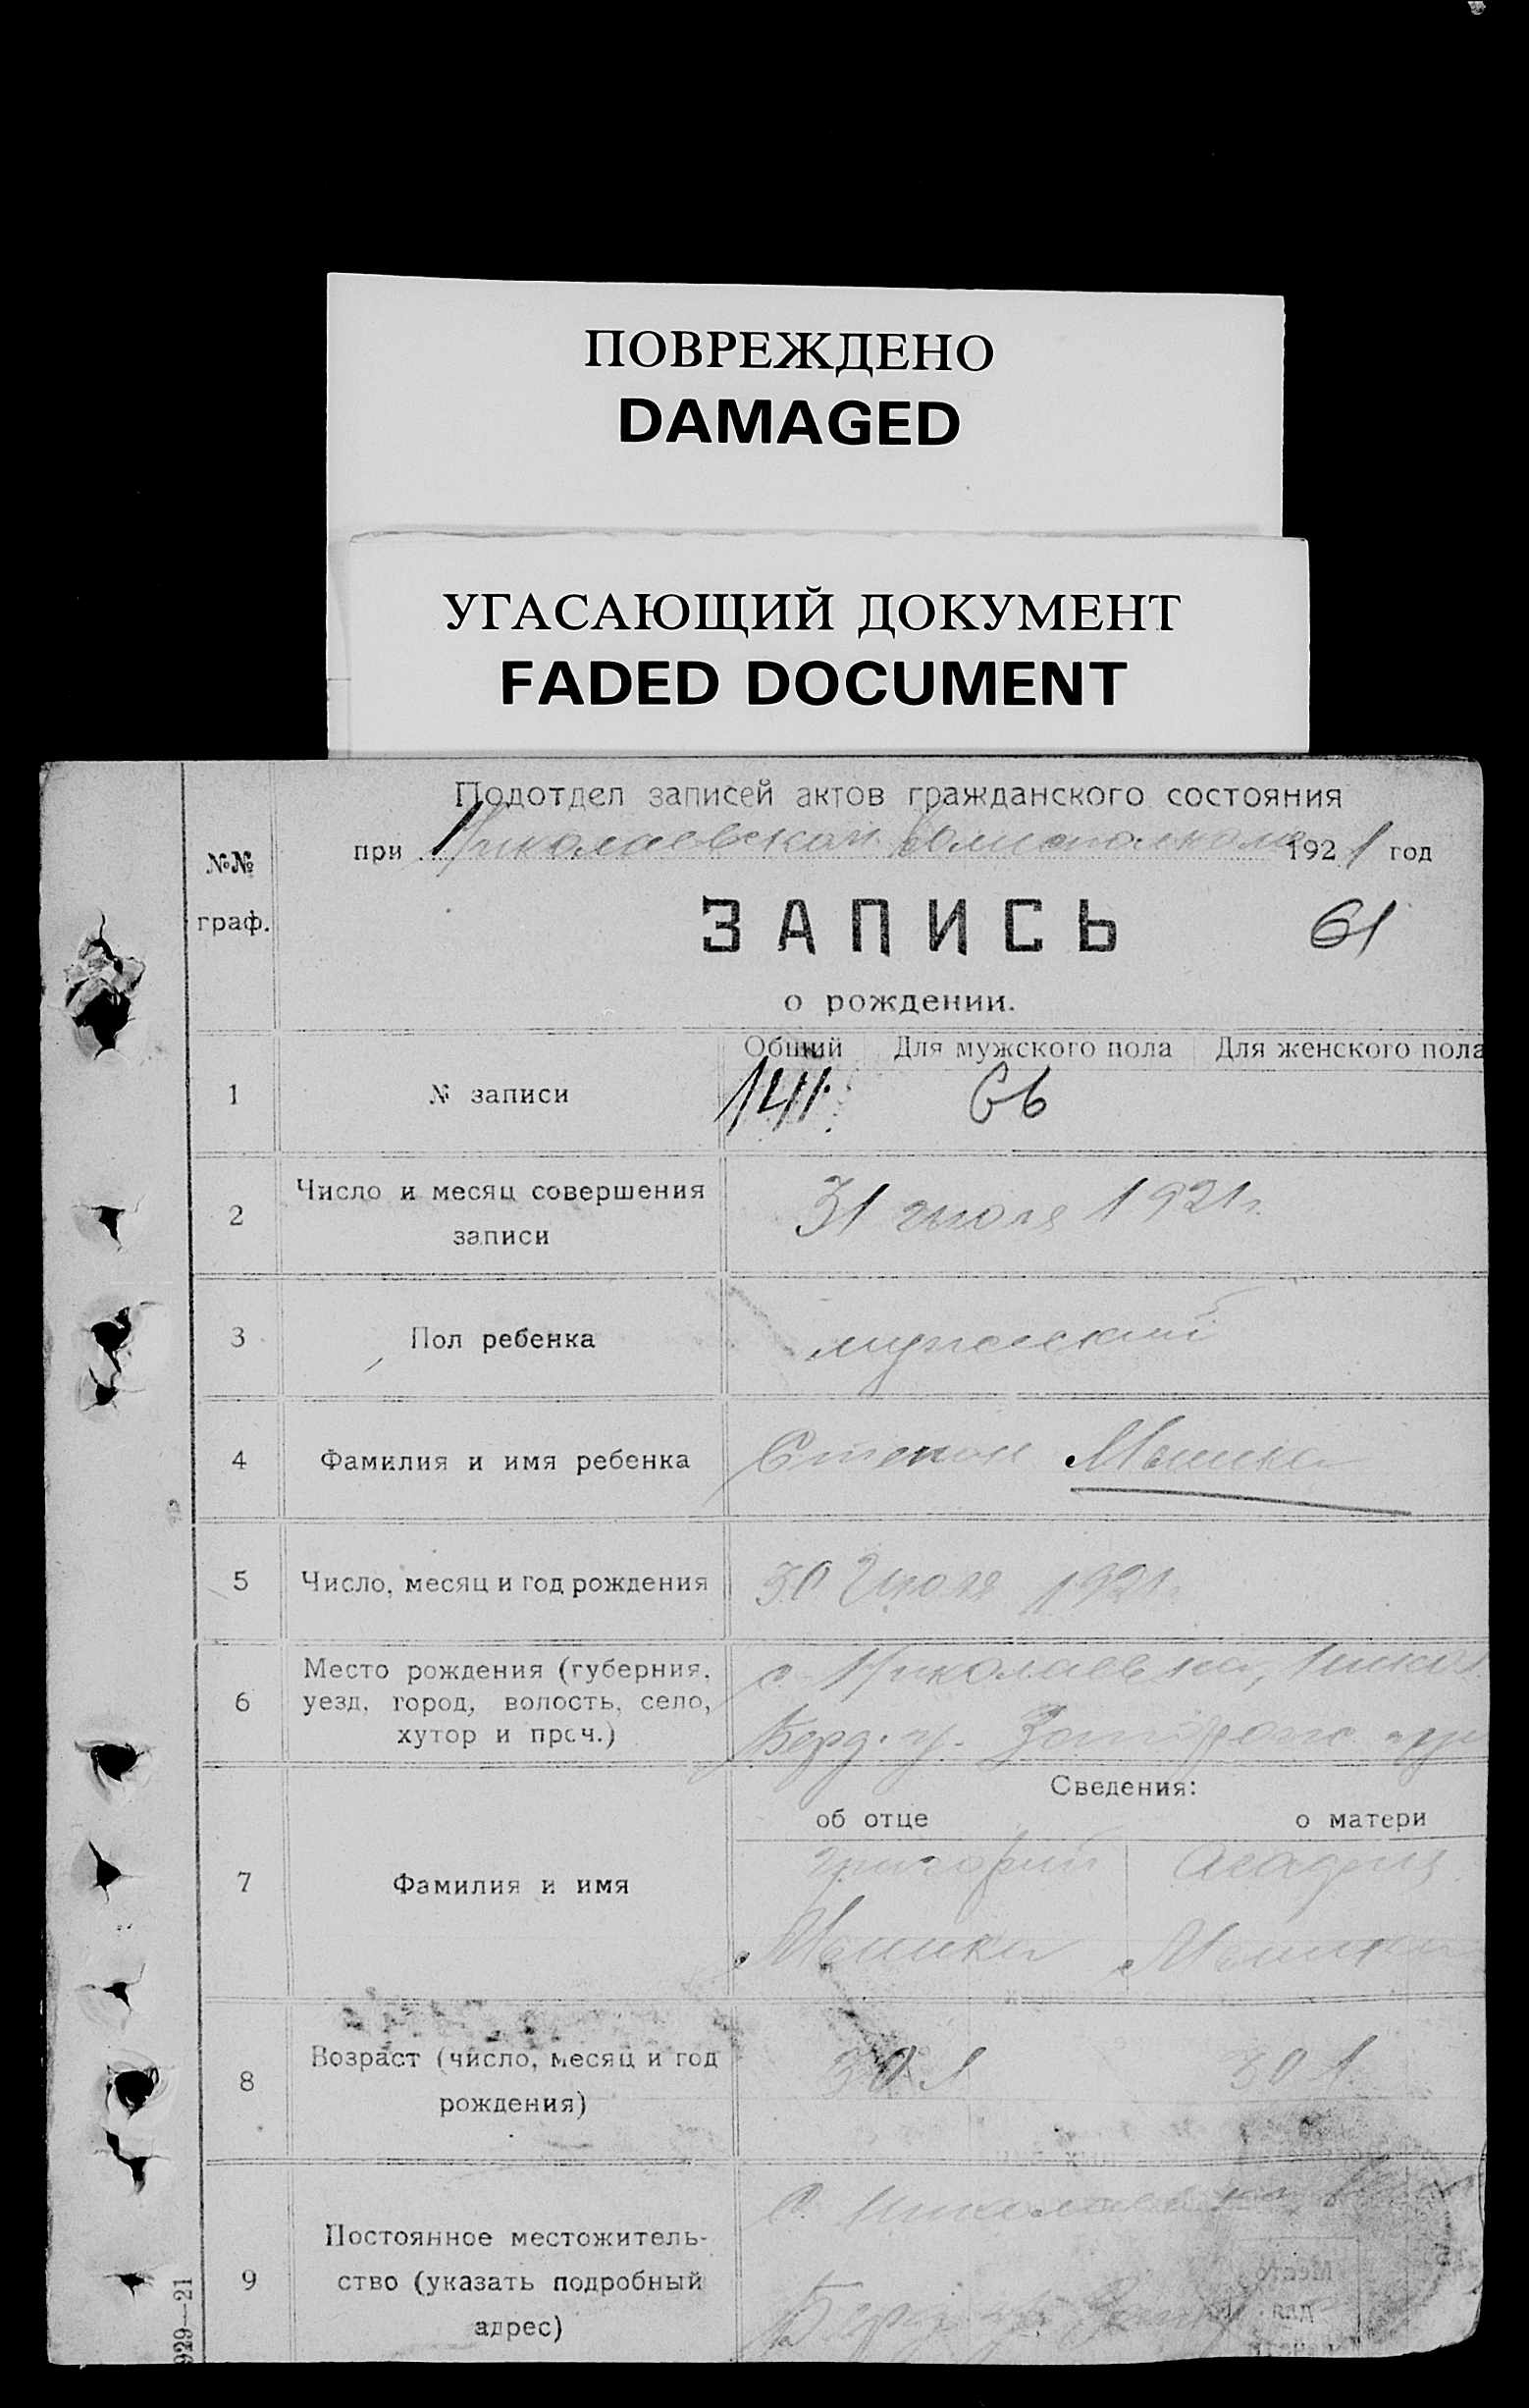 ПОВРЕЖДЕНО
DAMAGED
УГАСАЮЩИЙ ДОКУМЕНТ
FADED DOCUMENT
Подотдел записей актов гражданского состояния
№№ при Николаевском 1921 год
граф. ЗАПИСЬ 61
о рождении.
Общий Для мужского пола Для женского пола
1 № записи 141 66
2 Число и месяц совершения
записи
31 июля 1921 г.
3 Пол ребенка мужеский
4 Фамилия и имя ребенка Степан Мышка
5 Число, месяц и год рождения 30 Июля 1921
6 Место рождения (губерния,
уезд, город, волость, село,
хутор и проч.)
с. Николаевка,
Берд. у.
Сведения:
об отце о матери
7 Фамилия и имя
Григорий
Мышка Мышка
8 Возраст (число, месяц и год
рождения)
30 л 30 л.
9 Постоянное местожитель-
ство (указать подробный
адрес)
С. Николаевка
Берд.
929—21